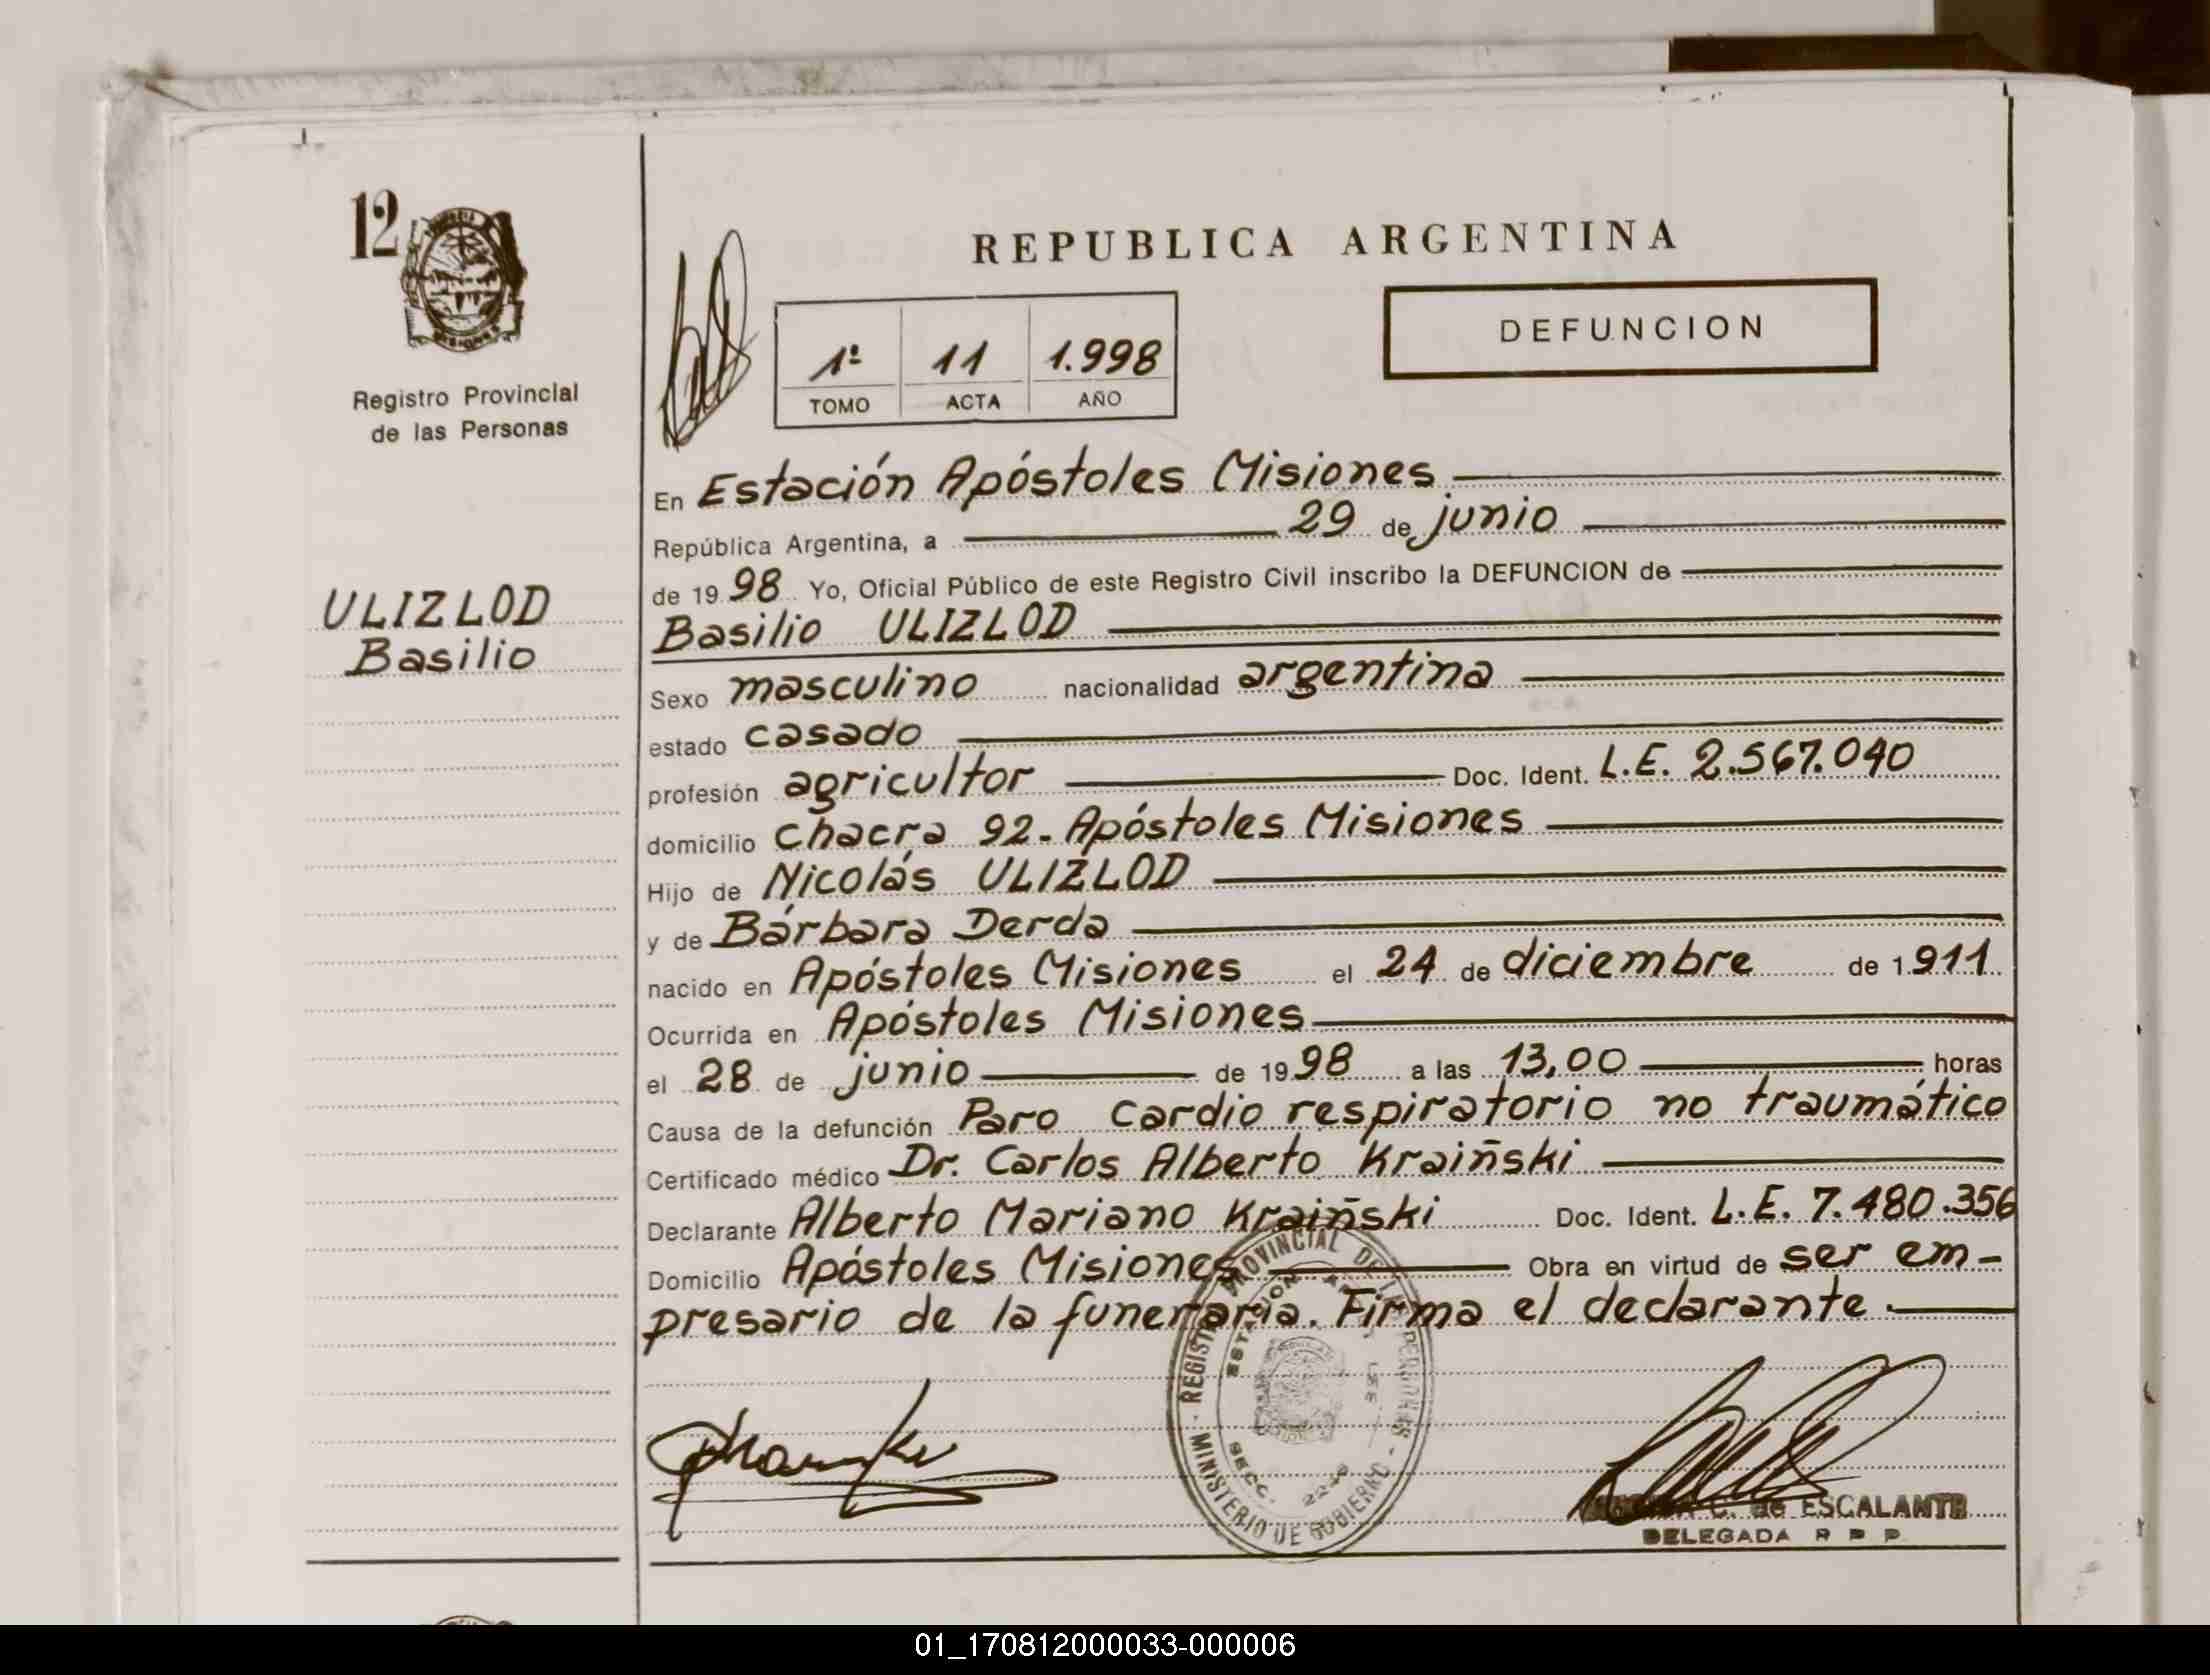 12
Registro Provincial
de las Personas
REPUBLICA ARGENTINA
DEFUNCION
1º 11 1.998
TOMO ACTA AÑO
ULIZLOD
Basilio
En Estación Apóstoles Misiones
República Argentina, a 29 de junio
de 1998 Yo, Oficial Público de este Registro Civil inscribo la DEFUNCION de
Basilio ULIZLOD
Sexo masculino nacionalidad argentina
estado casado
profesión agricultor Doc. Ident. L.E. 2.567.040
domicilio chacra 92. Apóstoles Misiones
Hijo de Nicolás ULIZLOD
y de Bárbara Derda
nacido en Apóstoles Misiones el 24 de diciembre de 1.911
Ocurrida en Apóstoles Misiones
el 28 de junio de 1998 a las 13,00 horas
Causa de la defunción Paro cardio respiratorio no traumático
Certificado médico Dr. Carlos Alberto Kraiñski
Declarante Alberto Mariano Kraiñski Doc. Ident. L.E. 7.480.356
Domicilio Apóstoles Misiones Obra en virtud de ser em-
presario de la funeraria. Firma el declarante.
REGISTRO PROVINCIAL DE LAS PERSONAS
MINISTERIO DE GOBIERNO
ESTACION
SECC.
C. de ESCALANTE
DELEGADA R P P
01_170812000033-000006